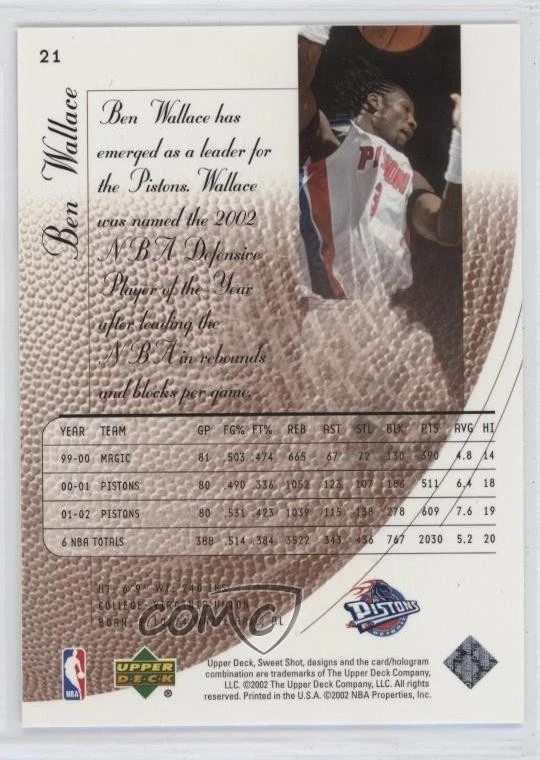 21
Ben Wallace
Ben Wallace has
emerged as a leader for
the Pistons. Wallace
was named the 2002
NBA Defensive
Player of the Year
after leading the
NBA in rebounds
and blocks per game.
PISTONS
3
YEAR TEAM GP FG% FT% REB AST STL BLK PTS AVG HI
99-00 MAGIC 81 .503 .474 665 67 72 130 390 4.8 14
00-01 PISTONS 80 .490 .336 1052 123 107 186 511 6.4 18
01-02 PISTONS 80 .531 .423 1039 115 138 278 609 7.6 19
6 NBA TOTALS 388 .514 .384 3522 343 436 767 2030 5.2 20
HT: 6'9" WT: 240 LBS
COLLEGE: VIRGINIA UNION
BORN: AL
COMC
PISTONS
DETROIT
NBA
UPPER
DECK
®
Upper Deck, Sweet Shot, designs and the card/hologram
combination are trademarks of The Upper Deck Company,
LLC. ©2002 The Upper Deck Company, LLC. All rights
reserved. Printed in the U.S.A. ©2002 NBA Properties, Inc.